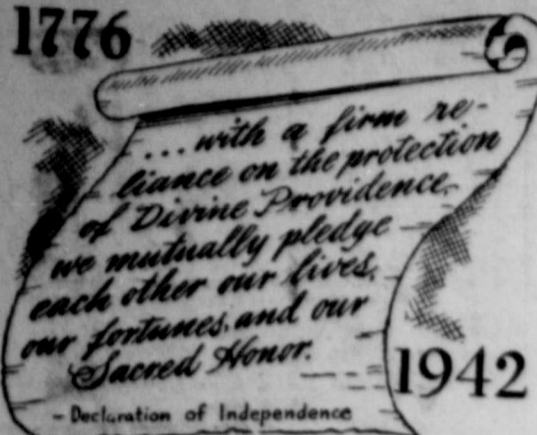 1776
... with a firm re-
liance on the protection
of Divine Providence,
we mutually pledge
each other our lives,
our fortunes, and our
Sacred Honor.
1942
- Declaration of Independence